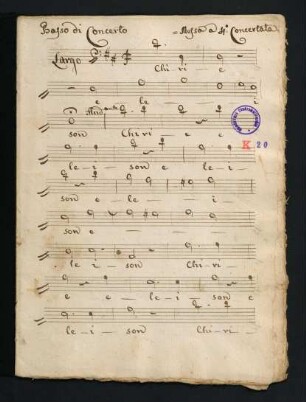 Basso di Concerto Messa a 4º Concertata
Largo
Chi ri
e le i
son Chi ri e e
K 20
le i son e le i
son e le i
son e
le i son Chi ri
e e le i son e
le i son Chi ri